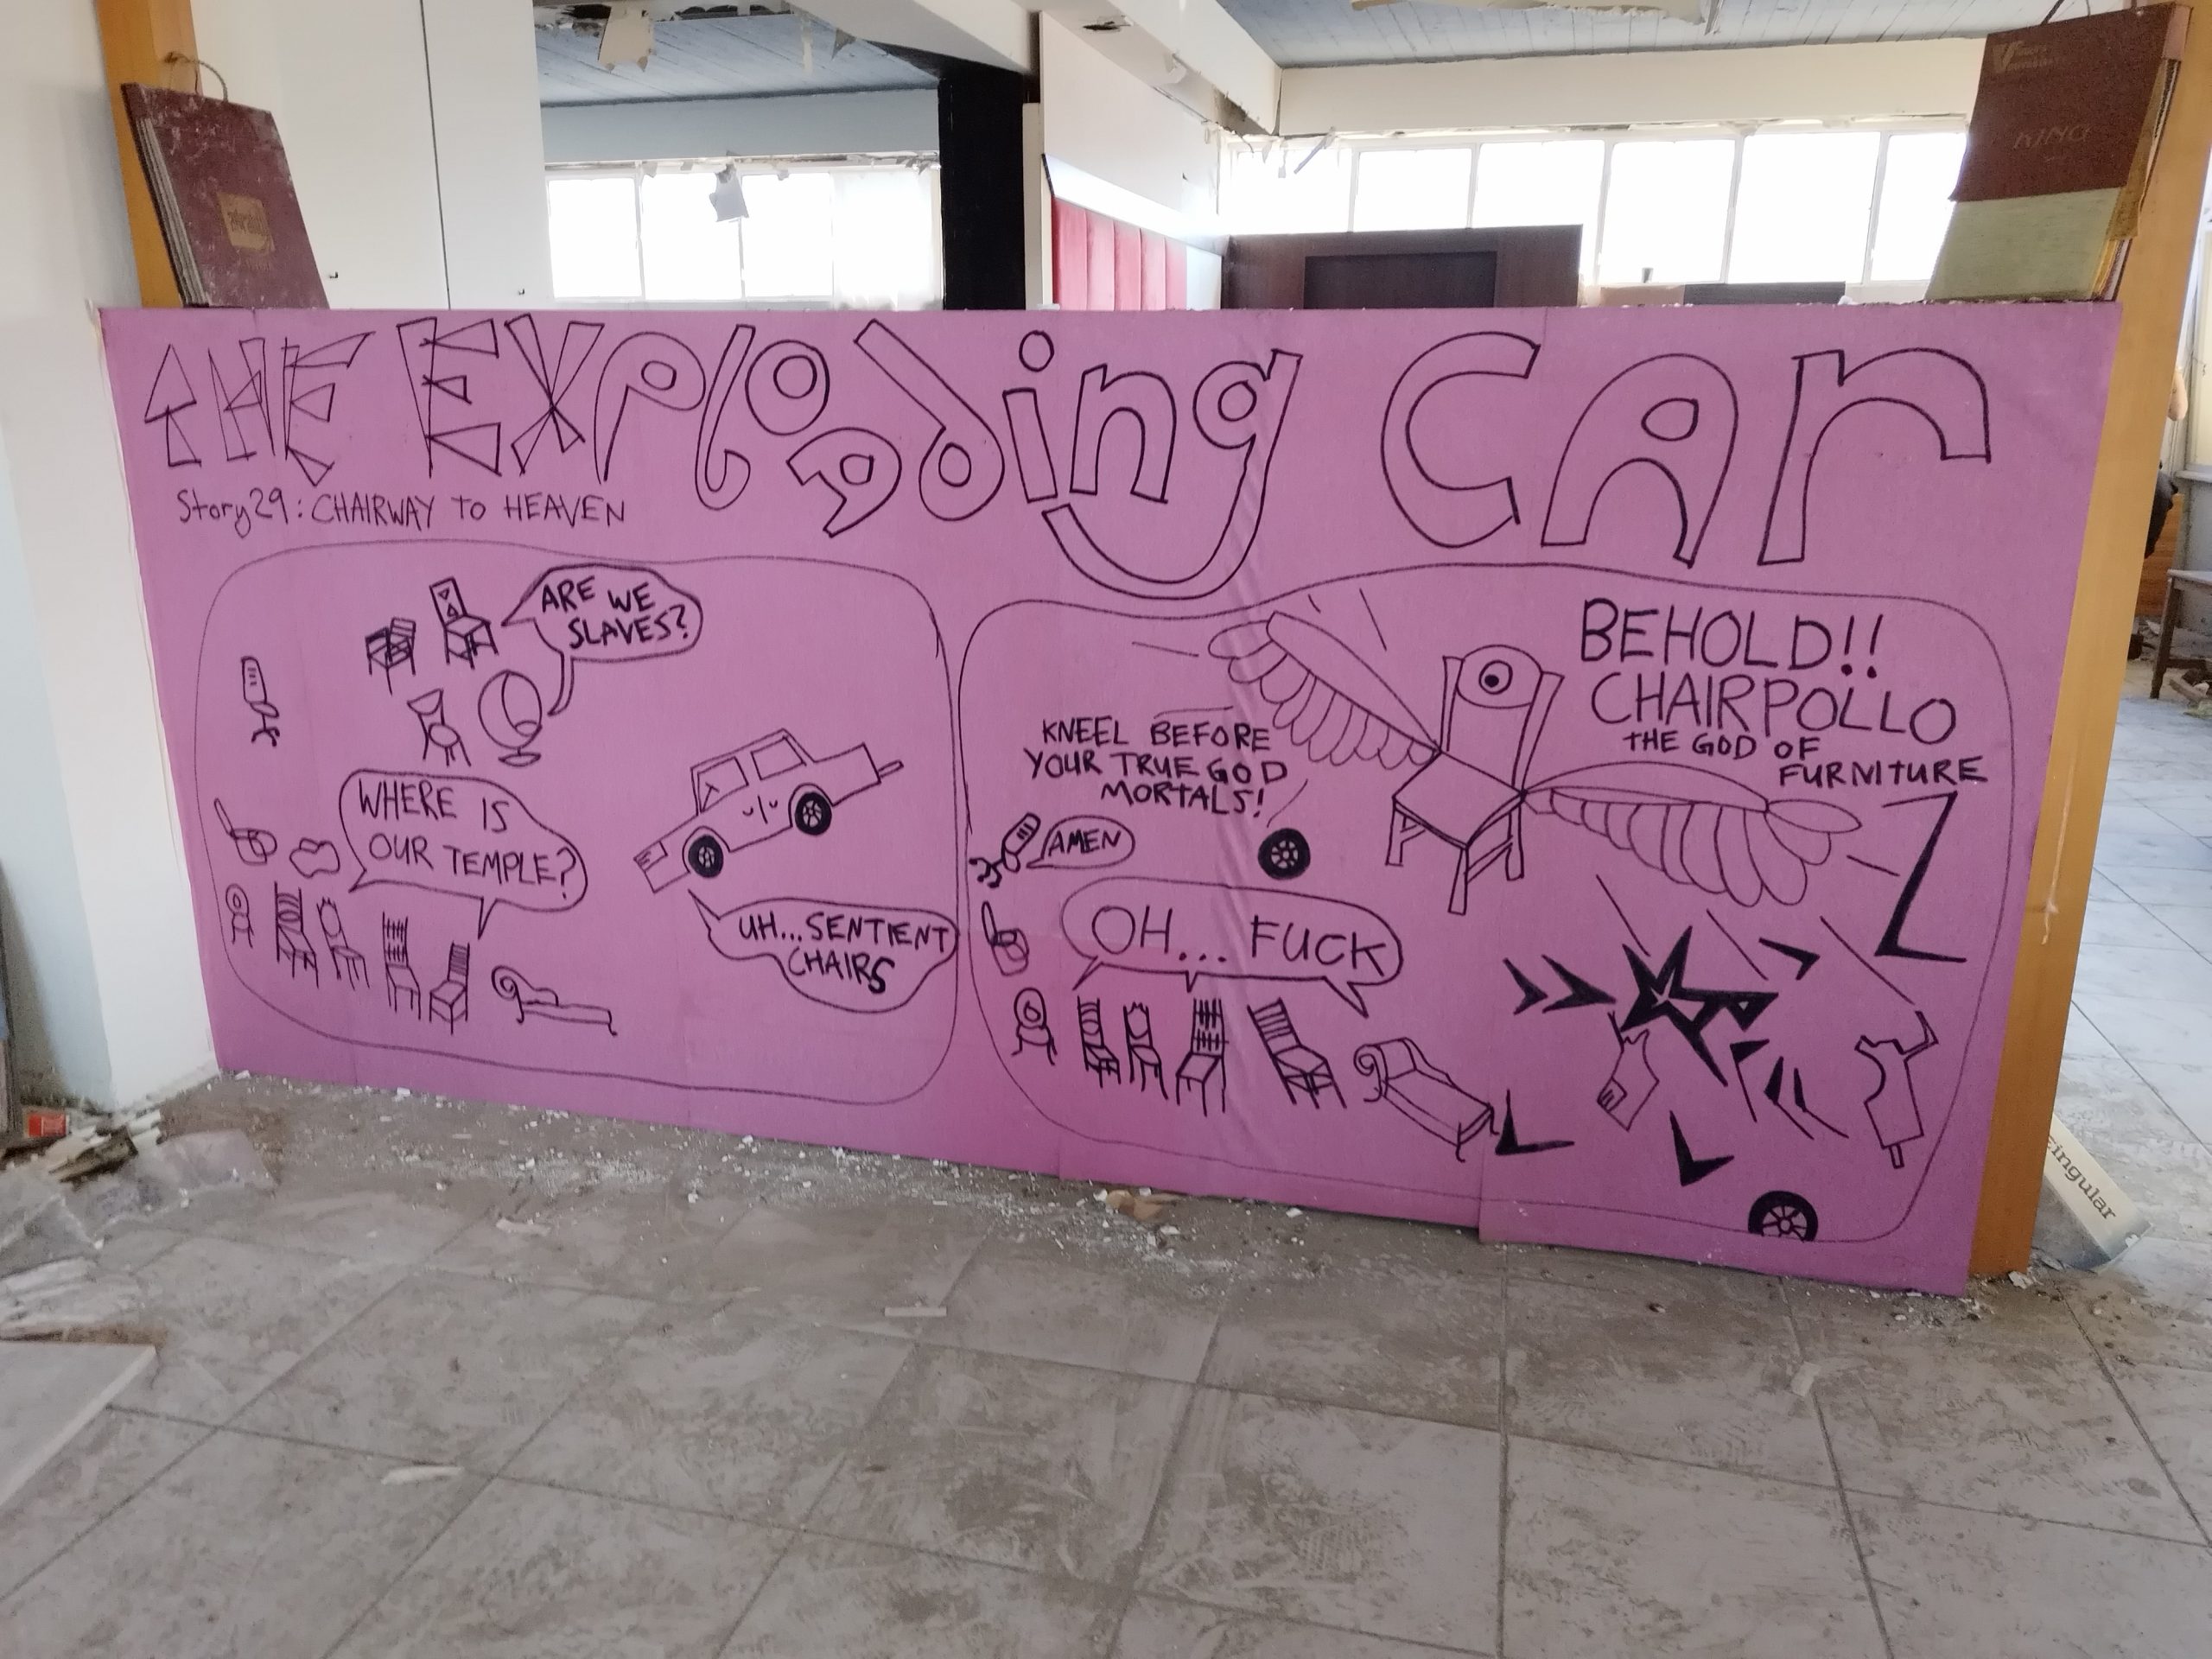 THE EXPloding CAr
Story 29: CHAIRWAY TO HEAVEN
ARE WE
SLAVES?
WHERE IS
OUR TEMPLE?
UH... SENTIENT
CHAIRS
BEHOLD!!
CHAIRPOLLO
THE GOD OF
FURNITURE
KNEEL BEFORE
YOUR TRUE GOD
MORTALS!
AMEN
OH... FUCK
KING
Cingular